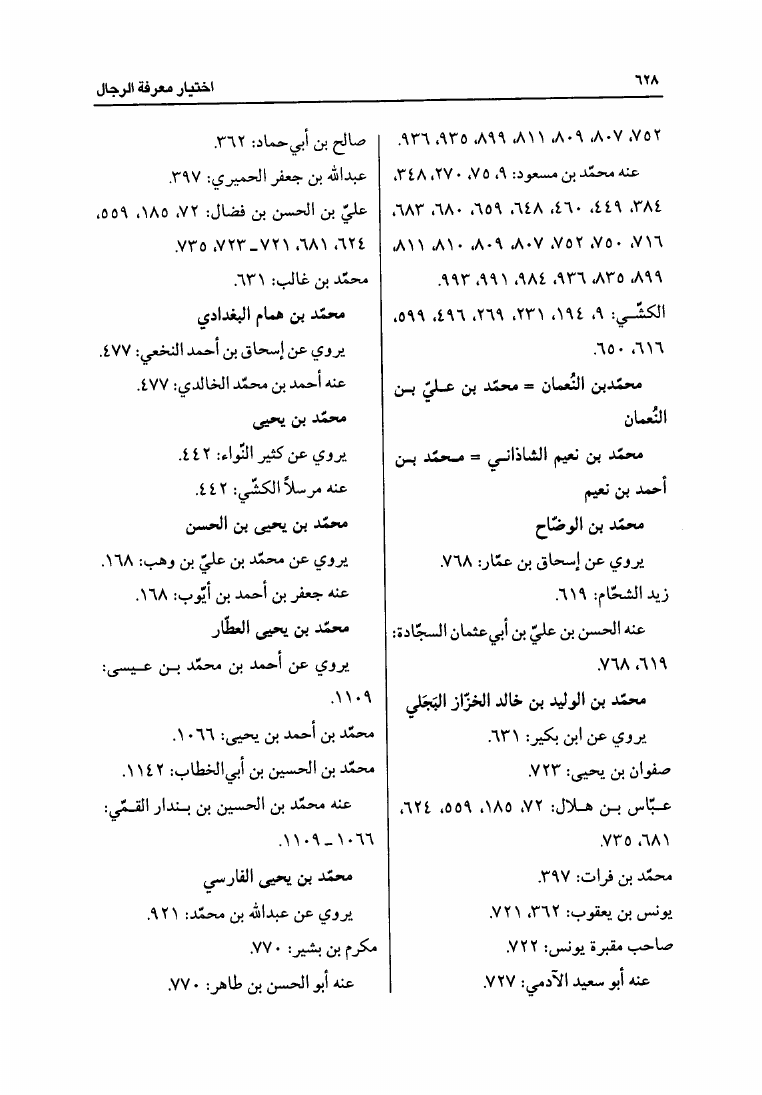 ٦٢٨
اختيار معرفة الرجال
٧٥٢، ٨٠٧، ٨٠٩، ٨١١، ٨٩٩، ٩٣٥، ٩٣٦.
عنه محمّد بن مسعود: ٩، ٧٥، ٢٧٠، ٣٤٨،
٣٨٤، ٤٤٩، ٤٦٠، ٦٤٨، ٦٥٩، ٦٨٠، ٦٨٣،
٧١٦، ٧٥٠، ٧٥٢، ٨٠٧، ٨٠٩، ٨١٠، ٨١١،
٨٩٩، ٨٣٥، ٩٣٦، ٩٨٤، ٩٩١، ٩٩٣.
الكشّـي: ٩، ١٩٤، ٢٣١، ٢٦٩، ٤٩٦، ٥٩٩،
٦١٦، ٦٥٠.
محمّدبن النُعمان = محمّد بن عـليّ بـن
النُعمان
محمّد بن نعيم الشاذانـي = مـحمّد بـن
أحمد بن نعيم
محمّد بن الوضّاح
يروي عن إسحاق بن عمّار: ٧٦٨.
زيد الشحّام: ٦١٩.
عنه الحسن بن عليّ بن أبي عثمان السجّادة:
٦١٩، ٧٦٨.
محمّد بن الوليد بن خالد الخزّاز البَجَلي
يروي عن ابن بكير: ٦٣١.
صفوان بن يحيى: ٧٢٣.
عـبّاس بـن هـلال: ٧٢، ١٨٥، ٥٥٩، ٦٢٤،
٦٨١، ٧٣٥.
محمّد بن فرات: ٣٩٧.
يونس بن يعقوب: ٣٦٢، ٧٢١.
صاحب مقبرة يونس: ٧٢٢.
عنه أبو سعيد الآدمي: ٧٢٧.
صالح بن أبي‌حماد: ٣٦٢.
عبدالله بن جعفر الحميري: ٣٩٧.
عليّ بن الحسن بن فضال: ٧٢، ١٨٥، ٥٥٩،
٦٢٤، ٦٨١، ٧٢١ـ٧٢٣، ٧٣٥.
محمّد بن غالب: ٦٣١.
محمّد بن همام البغدادي
يروي عن إسحاق بن أحمد النخعي: ٤٧٧.
عنه أحمد بن محمّد الخالدي: ٤٧٧.
محمّد بن يحيى
يروي عن كثير النّواء: ٤٤٢.
عنه مرسلاً الكشّي: ٤٤٢.
محمّد بن يحيى بن الحسن
يروي عن محمّد بن عليّ بن وهب: ١٦٨.
عنه جعفر بن أحمد بن أيّوب: ١٦٨.
محمّد بن يحيى العطّار
يروي عن أحمد بن محمّد بـن عـيسى:
١١٠٩.
محمّد بن أحمد بن يحيى: ١٠٦٦.
محمّد بن الحسين بن أبي‌الخطاب: ١١٤٢.
عنه محمّد بن الحسين بن بـندار القـمّي:
١٠٦٦ـ١١٠٩.
محمّد بن يحيى الفارسي
يروي عن عبدالله بن محمّد: ٩٢١.
مكرم بن بشير: ٧٧٠.
عنه أبو الحسن بن طاهر: ٧٧٠.